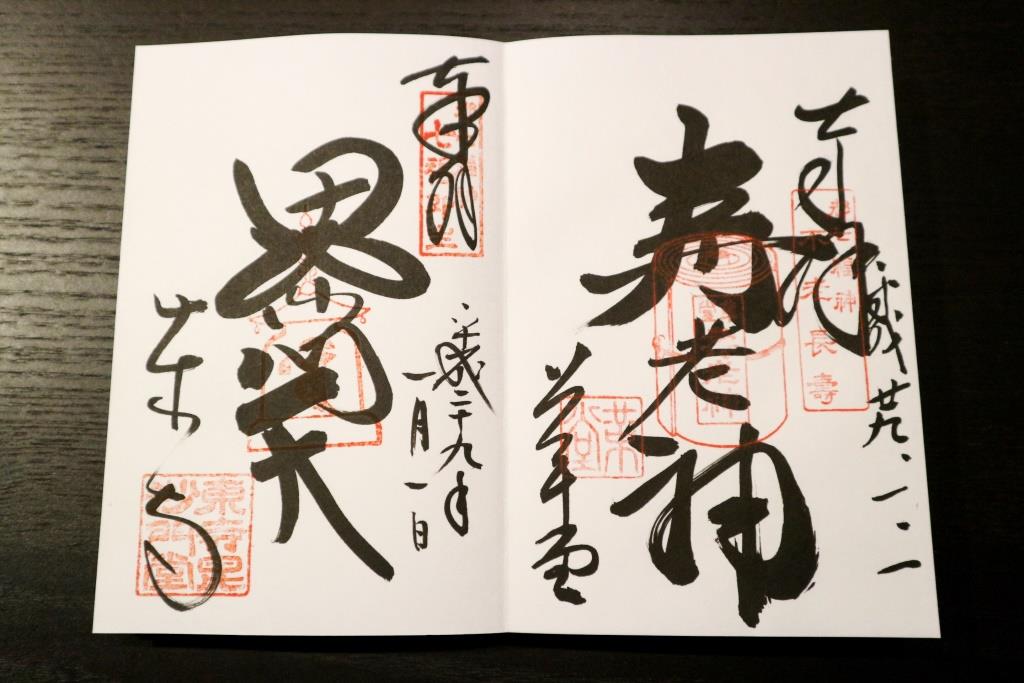 奉拝
都七福神
不老長壽
平成廿九、一、一
寿老神
革堂
奉拝
平成二十九年
一月一日
毘沙門天
東寺